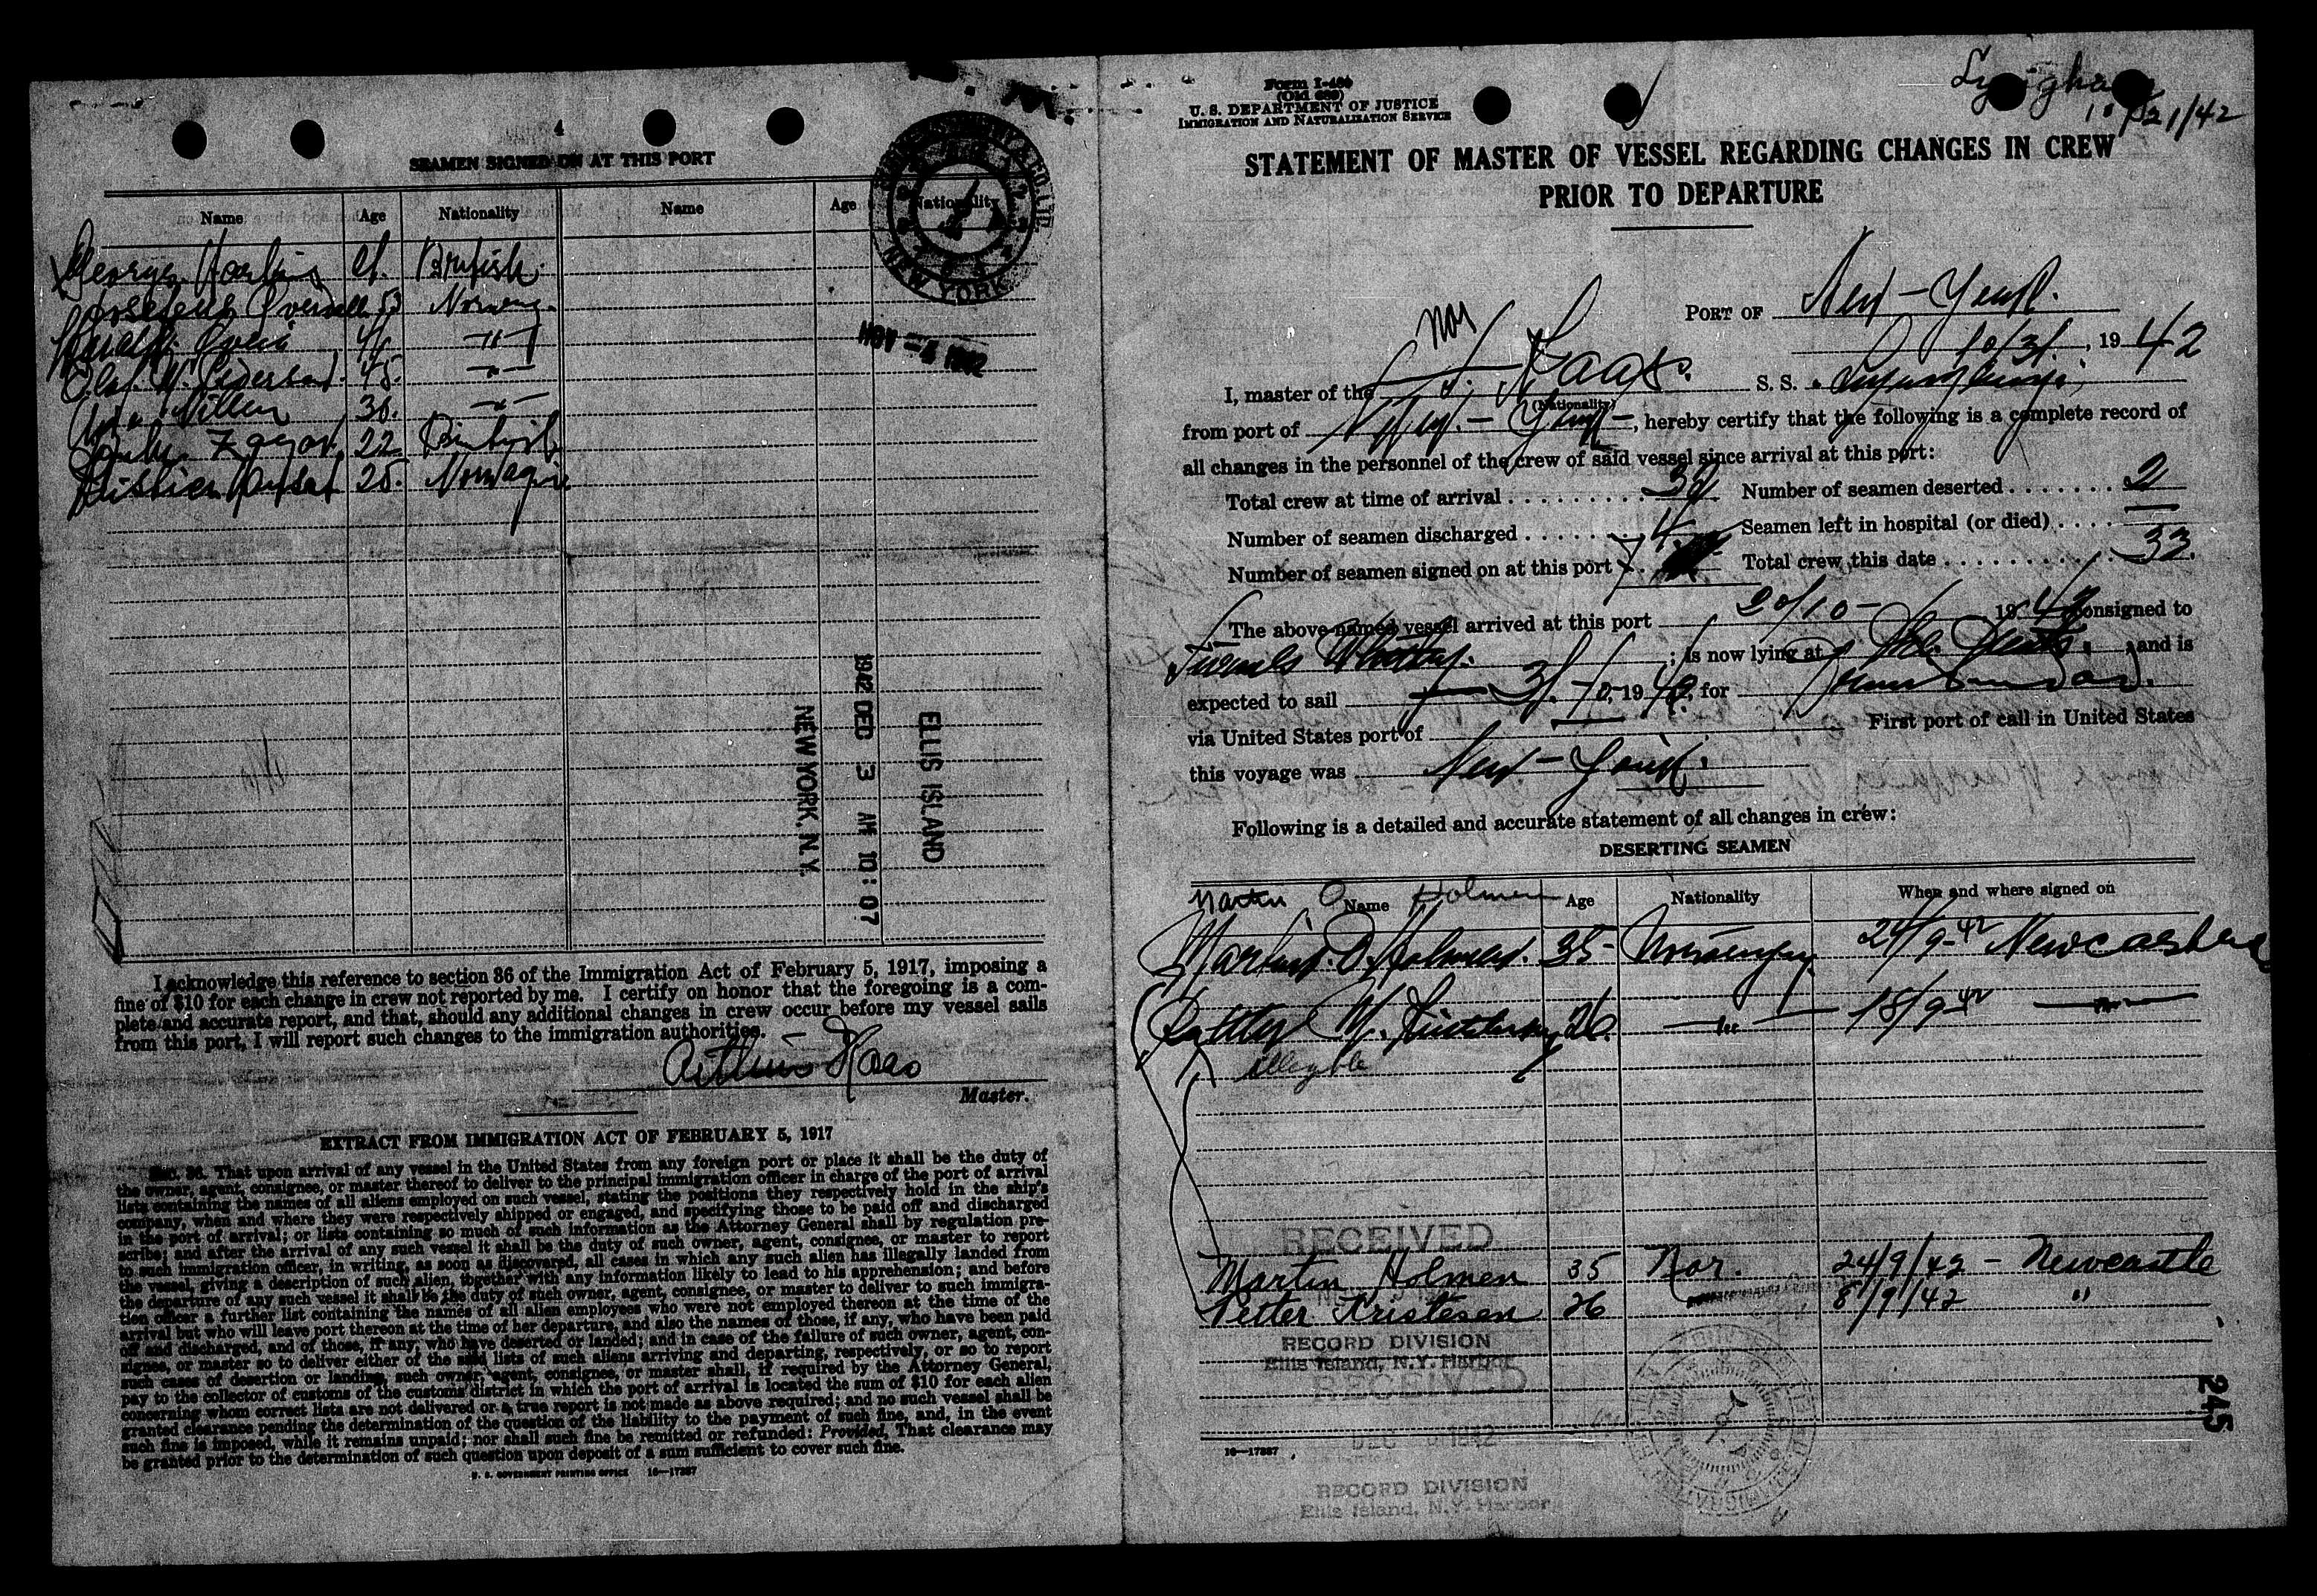 4
SEAMEN SIGNED ON AT THIS PORT
Name Age Nationality Name Age Nationality
George British
53
45.
36.
22
25.
NEW YORK
NOV - 4 1942
ELLIS ISLAND
1942 DEC 3 AM 10:07
NEW YORK, N. Y.
I acknowledge this reference to section 36 of the Immigration Act of February 5, 1917, imposing a
fine of $10 for each change in crew not reported by me. I certify on honor that the foregoing is a com-
plete and accurate report, and that, should any additional changes in crew occur before my vessel sails
from this port, I will report such changes to the immigration authorities.
Haas
Master.
EXTRACT FROM IMMIGRATION ACT OF FEBRUARY 5, 1917
SEC. 36. That upon arrival of any vessel in the United States from any foreign port or place it shall be the duty of
the owner, agent, consignee, or master thereof to deliver to the principal immigration officer in charge of the port of arrival
lists containing the names of all aliens employed on such vessel, stating the positions they respectively hold in the ship's
company, when and where they were respectively shipped or engaged, and specifying those to be paid off and discharged
in the port of arrival; or lists containing so much of such information as the Attorney General shall by regulation pre-
scribe; and after the arrival of any such vessel it shall be the duty of such owner, agent, consignee, or master to report
to such immigration officer, in writing, as soon as discovered, all cases in which any such alien has illegally landed from
the vessel, giving a description of such alien, together with any information likely to lead to his apprehension; and before
the departure of any such vessel it shall be the duty of such owner, agent, consignee, or master to deliver to such immigra-
tion officer a further list containing the names of all alien employees who were not employed thereon at the time of the
arrival but who will leave port thereon at the time of her departure, and also the names of those, if any, who have been paid
off and discharged, and of those, if any, who have deserted or landed; and in case of the failure of such owner, agent, con-
signee, or master so to deliver either of the said lists of such aliens arriving and departing, respectively, or so to report
such cases of desertion or landing, such owner, agent, consignee, or master shall, if required by the Attorney General,
pay to the collector of customs of the customs district in which the port of arrival is located the sum of $10 for each alien
concerning whom correct lists are not delivered or a true report is not made as above required; and no such vessel shall be
granted clearance pending the determination of the question of the liability to the payment of such fine, and, in the event
such fine is imposed, while it remains unpaid; nor shall such fine be remitted or refunded: Provided, That clearance may
be granted prior to the determination of such question upon deposit of a sum sufficient to cover such fine.
U. S. GOVERNMENT PRINTING OFFICE 16—17387
U. S. DEPARTMENT OF JUSTICE
IMMIGRATION AND NATURALIZATION SERVICE
STATEMENT OF MASTER OF VESSEL REGARDING CHANGES IN CREW
PRIOR TO DEPARTURE
PORT OF New-York.
10/31, 1942
Nor
I, master of the S. S.
(Nationality)
from port of New-York, hereby certify that the following is a complete record of
all changes in the personnel of the crew of said vessel since arrival at this port:
Total crew at time of arrival Number of seamen deserted 2
Number of seamen discharged 4 Seamen left in hospital (or died) —
Number of seamen signed on at this port 7 Total crew this date 33.
The above-named vessel arrived at this port 20/10- 1942 consigned to
; is now lying at , and is
expected to sail 31. -10-1942, for
via United States port of — First port of call in United States
this voyage was New-York.
Following is a detailed and accurate statement of all changes in crew:
DESERTING SEAMEN
Martin O Holmen
Name Age Nationality When and where signed on
Martin O. Holmen. 35- 24/9-42 Newcastle
26. —"— 18/9-42 —"—
illegible
RECEIVED
Martin Holmen 35 Nor. 24/9/42 - Newcastle
Petter Kristesen 26 8/9/42 "
RECORD DIVISION
Ellis Island, N.Y. Harbor
RECEIVED
DEC 1942
RECORD DIVISION
Ellis Island, N.Y. Harbor
16—17387
245